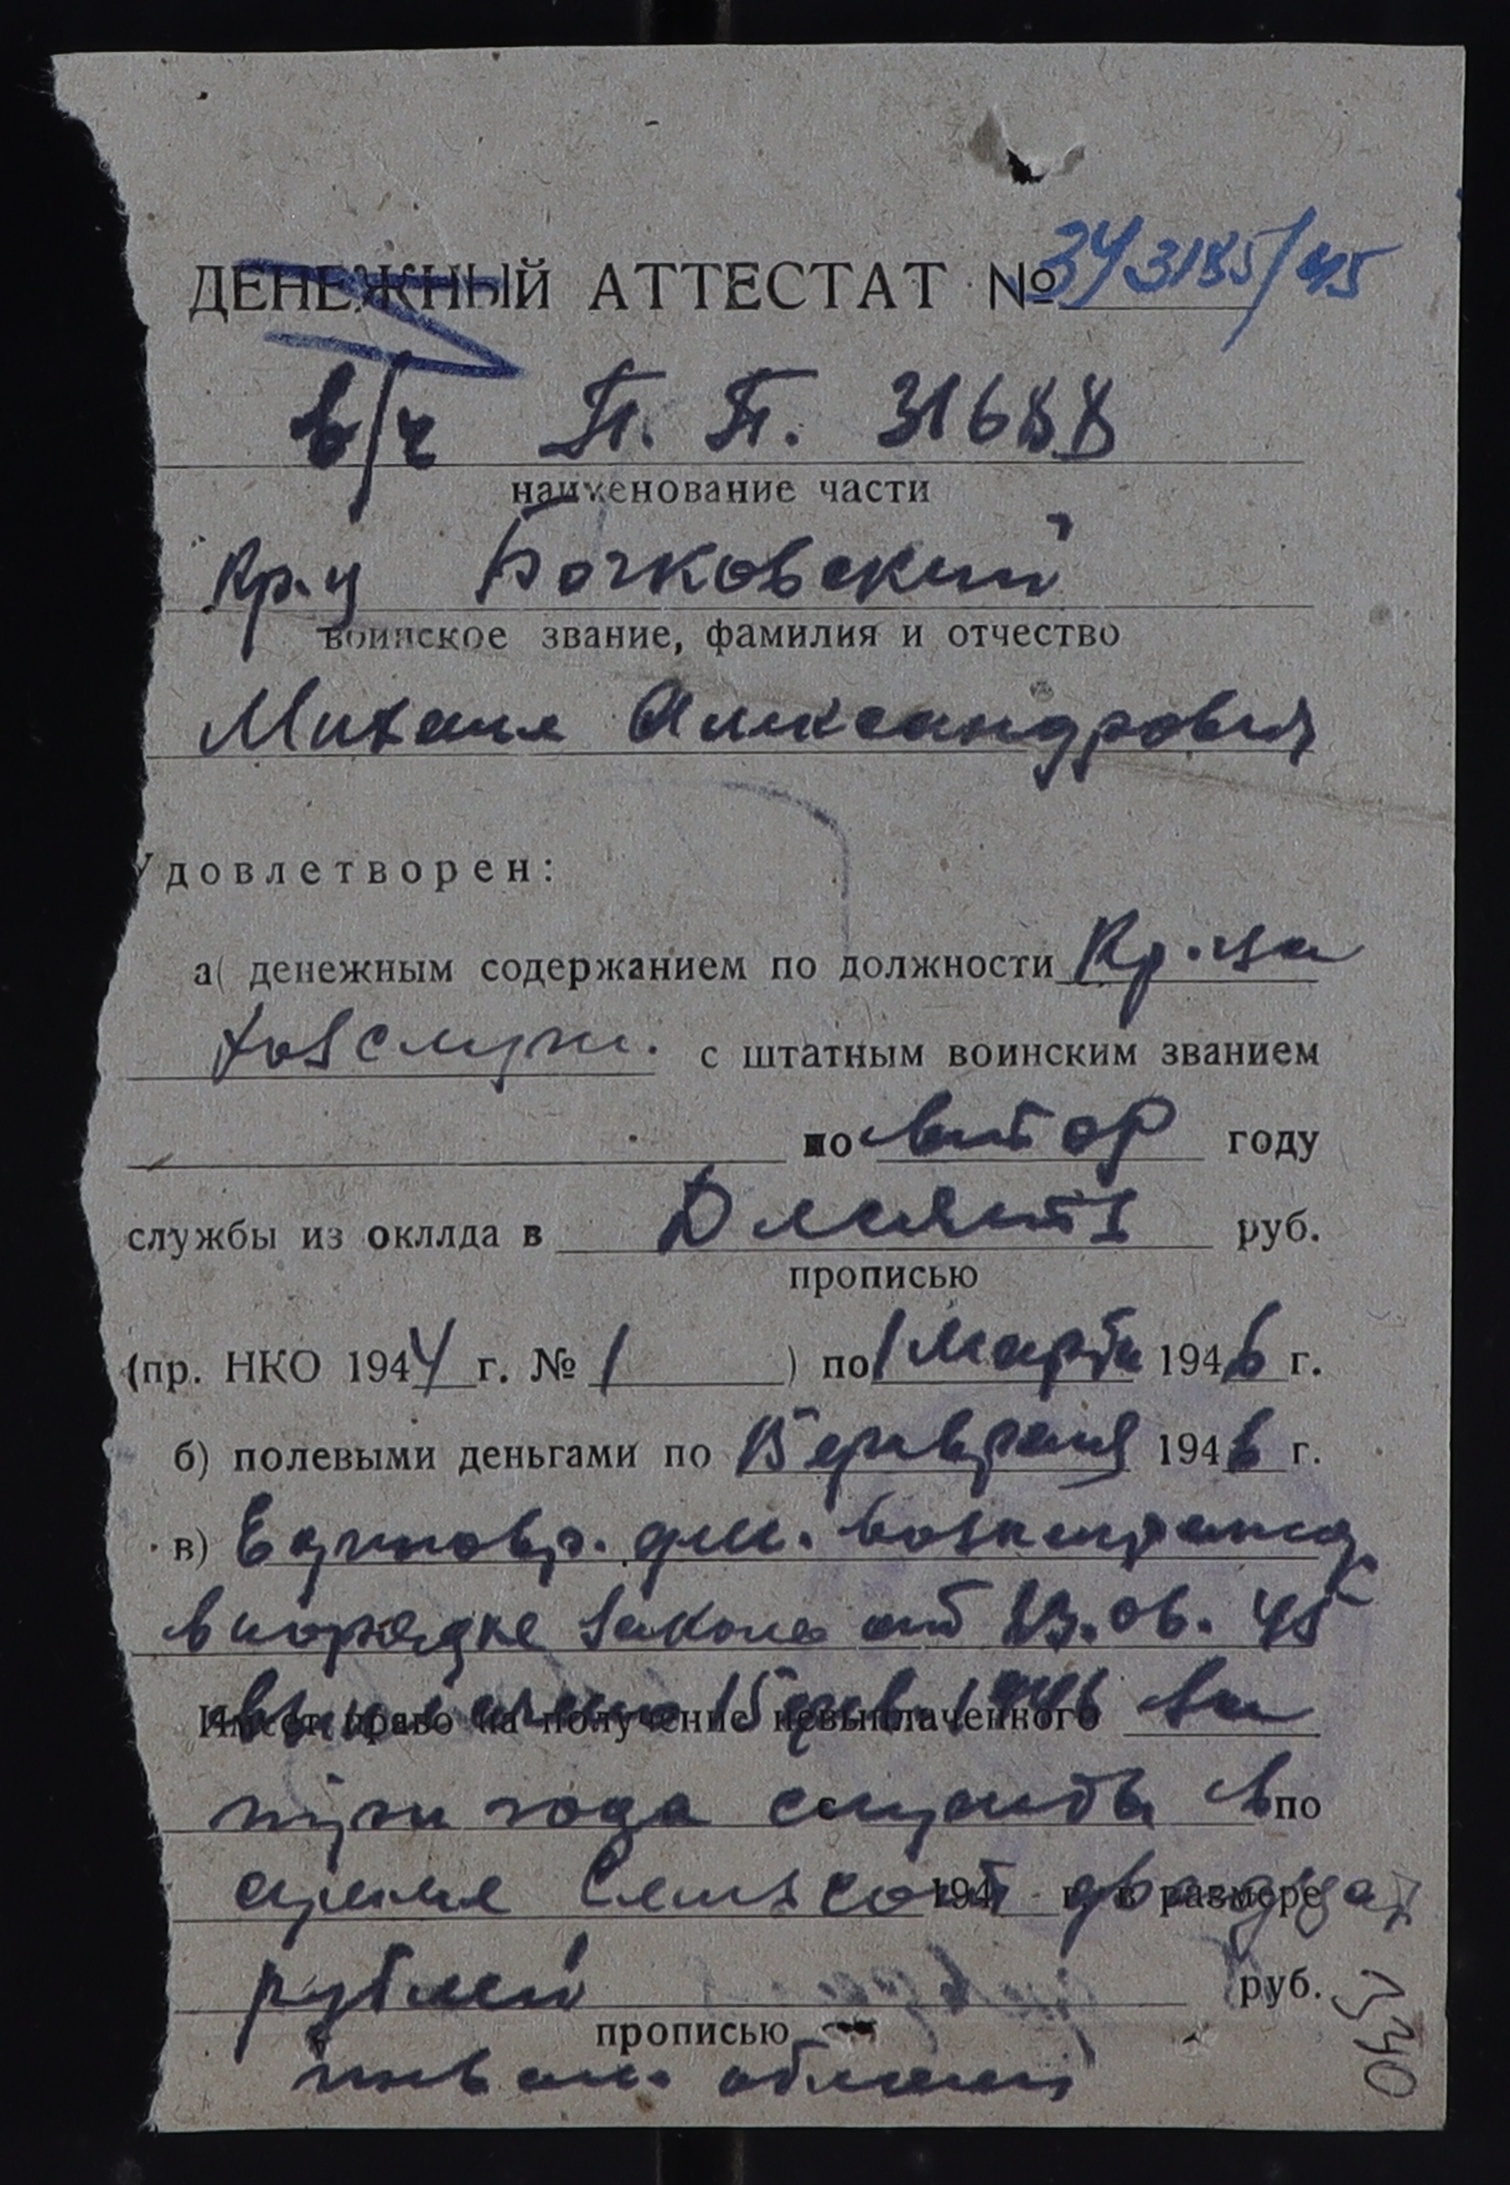 ДЕНЕЖНЫЙ АТТЕСТАТ № 343185/45
в/ч П. П. 31688
наименование части
Кр-ц Бочковский
воинское звание, фамилия и отчество
Михаил Александрович
Удовлетворен:
а( денежным содержанием по должности Кр-ца
хозслуж. с штатным воинским званием
по втор году
службы из окллда в Десять руб.
прописью
(пр. НКО 1944 г. № 1 ) по 1 марта 1946 г.
б) полевыми деньгами по 15 февраля 1946 г.
в) Единовр. ден. вознагражд
в порядке закона от 23.06.45
Имеет право на получение невыплаченного за
выплачено 15 фев. 1946
три года службы в по
сумме Семьсот двадцат 194 г. в размере
рублей руб.
прописью
1340